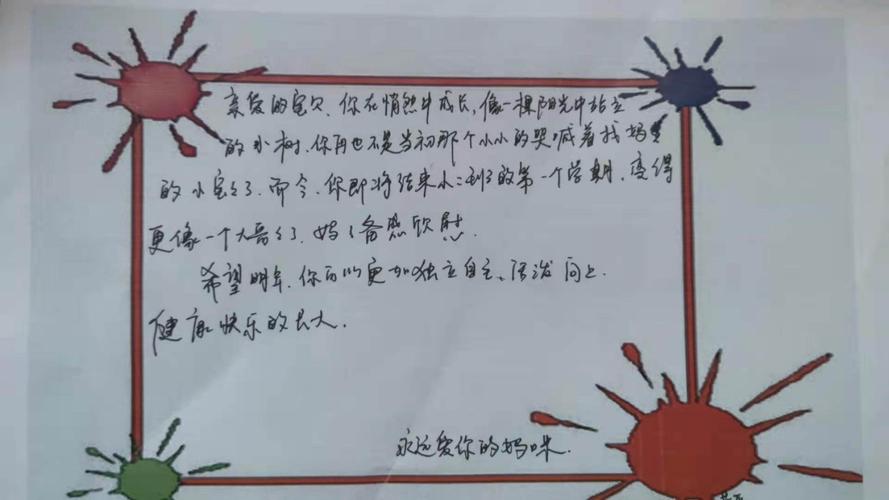 亲爱的宝贝、你在悄然中成长,像一棵阳光中站立
的小树、你再也不是当初那个小小的哭喊着找妈妈
的小宝宝了、而今、你即将结束小二班的第一个学期、变得
更像一个大哥哥了、妈妈备感欣慰.
希望明年、你可以更加独立自主、活泼向上.
健康快乐的长大.
永远爱你的妈咪.